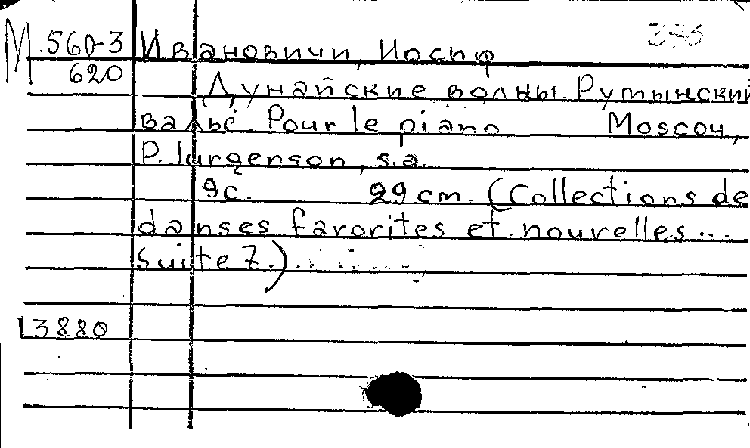 М 560-3 Ивановичи, Иосиф
620 Дунайские волны. Румынский
вальс. Pour le piano Moscou,
P. Jurgenson, s.a.
9c. 29 cm. (Collections de
danses favorites et nouvelles...
Suite 7.)
13880